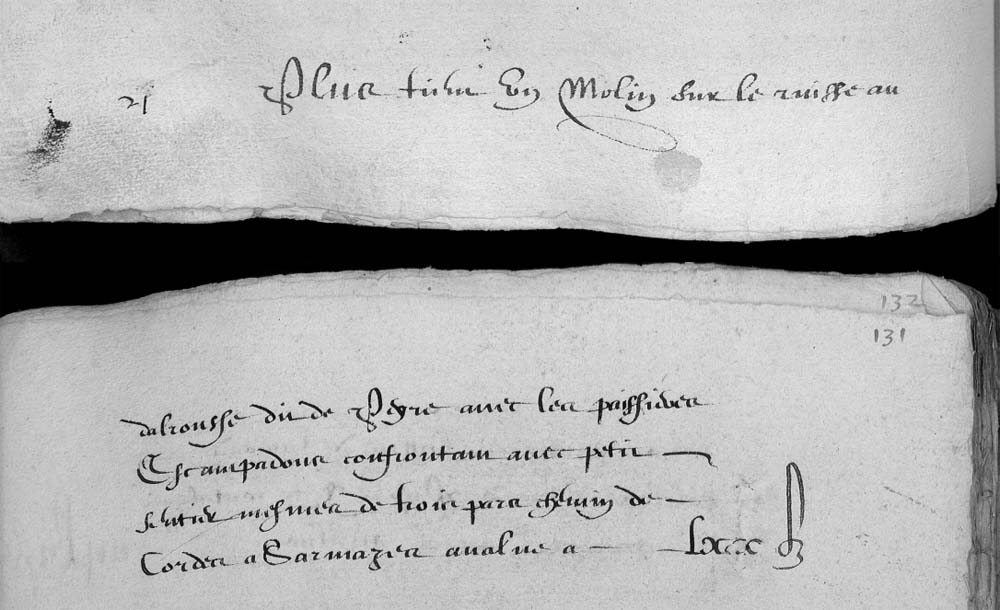 21 Plus tient un Molin sur le ruisseau
132
131
dalrousse dit de Peyre avec les paissieres
Escampadous confrontant avec petit
sentier mesmes de trois pars chemin de
Cordes a Sarmazes avalué a lxxx